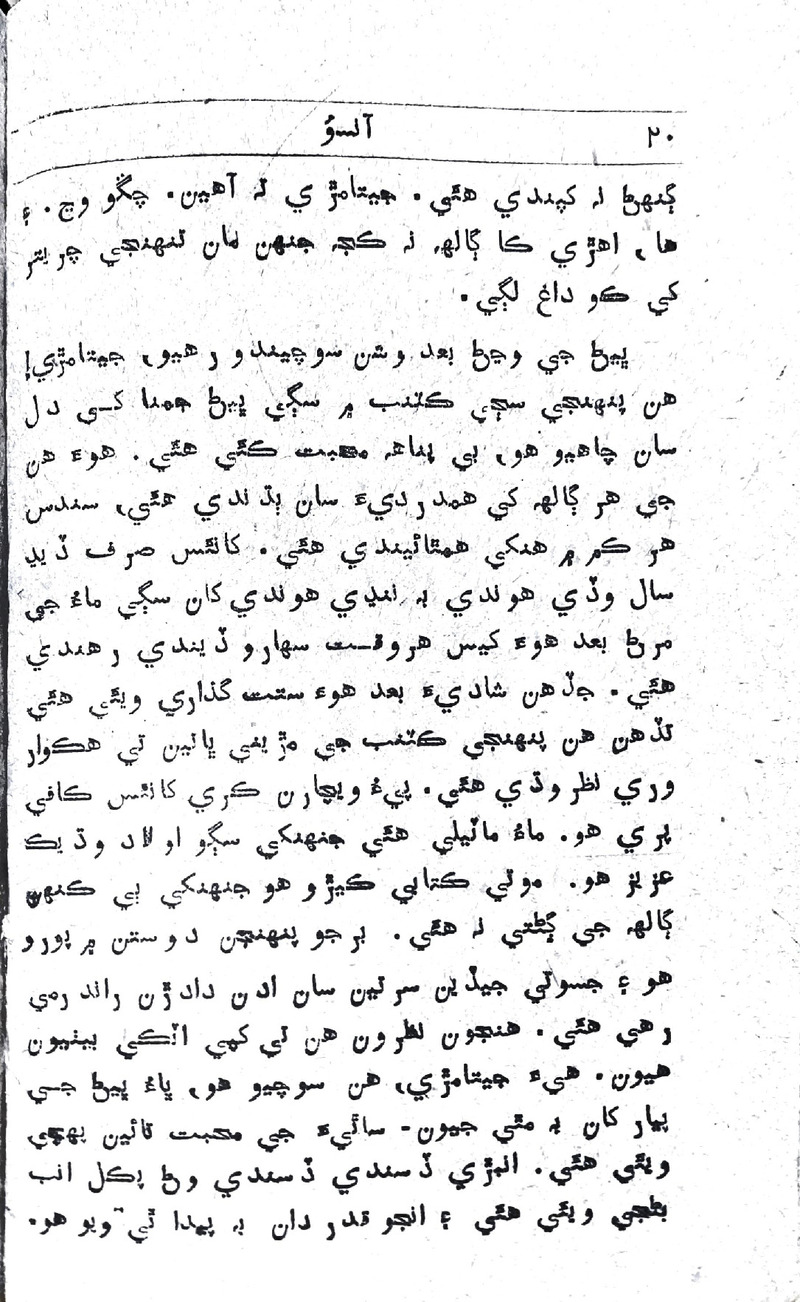 ٢٠ آلسوُ
ڳنهڻ نہ کپندي هئي. جيتامڙي تہ آهين. چڱو وڃ. ۽
ها، اهڙي ڪا ڳالهہ نہ ڪجہ جنهن مان تنهنجي چرپتر
کي ڪو داغ لڳي.
ڀيڻ جي وڃڻ بعد وشن سوچيندو رهيو، جيتامڙي!
هن پنهنجي سڄي ڪٽنب ۾ سڳي ڀيڻ جمنا کي دل
سان چاهيو هو، بي پناهہ محبت ڪئي هئي. هوءَ هن
جي هر ڳالهہ کي همدرديءَ سان ٻڌندي هئي، سندس
هر ڪم ۾ هنکي همٿائيندي هئي. کانئس صرف ڏيڍ
سال وڏي هوندي بہ ننڍي هوندي کان سڳي ماءُ جي
مرڻ بعد هوءَ کيس هروقت سهارو ڏيندي رهندي
هئي. جڏهن شاديءَ بعد هوءَ ستت گذاري ويئي هئي
تڏهن هن پنهنجي ڪٽنب جي مڙيني ڀاتين تي هڪوار
وري نظر وڌي هئي. پيءُ ويچارن ڪري کانئس ڪافي
پري هو. ماءُ ماٽيلي هئي جنهنکي سڳو اولاد وڌيڪ
عزيز هو. موتي ڪتابي ڪيڙو هو جنهنکي ٻي ڪنهن
ڳالهہ جي ڳڻتي نہ هئي. برجو پنهنجن دوستن ۾ پورو
هو ۽ جسوتي جيڏين سرتين سان ادن دادڙن راند رمي
رهي هئي. هنجون نظرون هن تي کمي اٽڪي بيٺيون
هيون. هيءَ جيتامڙي، هن سوچيو هو، ڀاءُ ڀيڻ جي
پيار کان بہ مٿي جيون- ساٿيءَ جي محبت تائين پهچي
ويئي هئي. انبڙي ڏسندي ڏسندي وڻ پڪل انب
بڻجي ويئي هئي ۽ انجو قدردان بہ پيدا ٿي ويو هو.